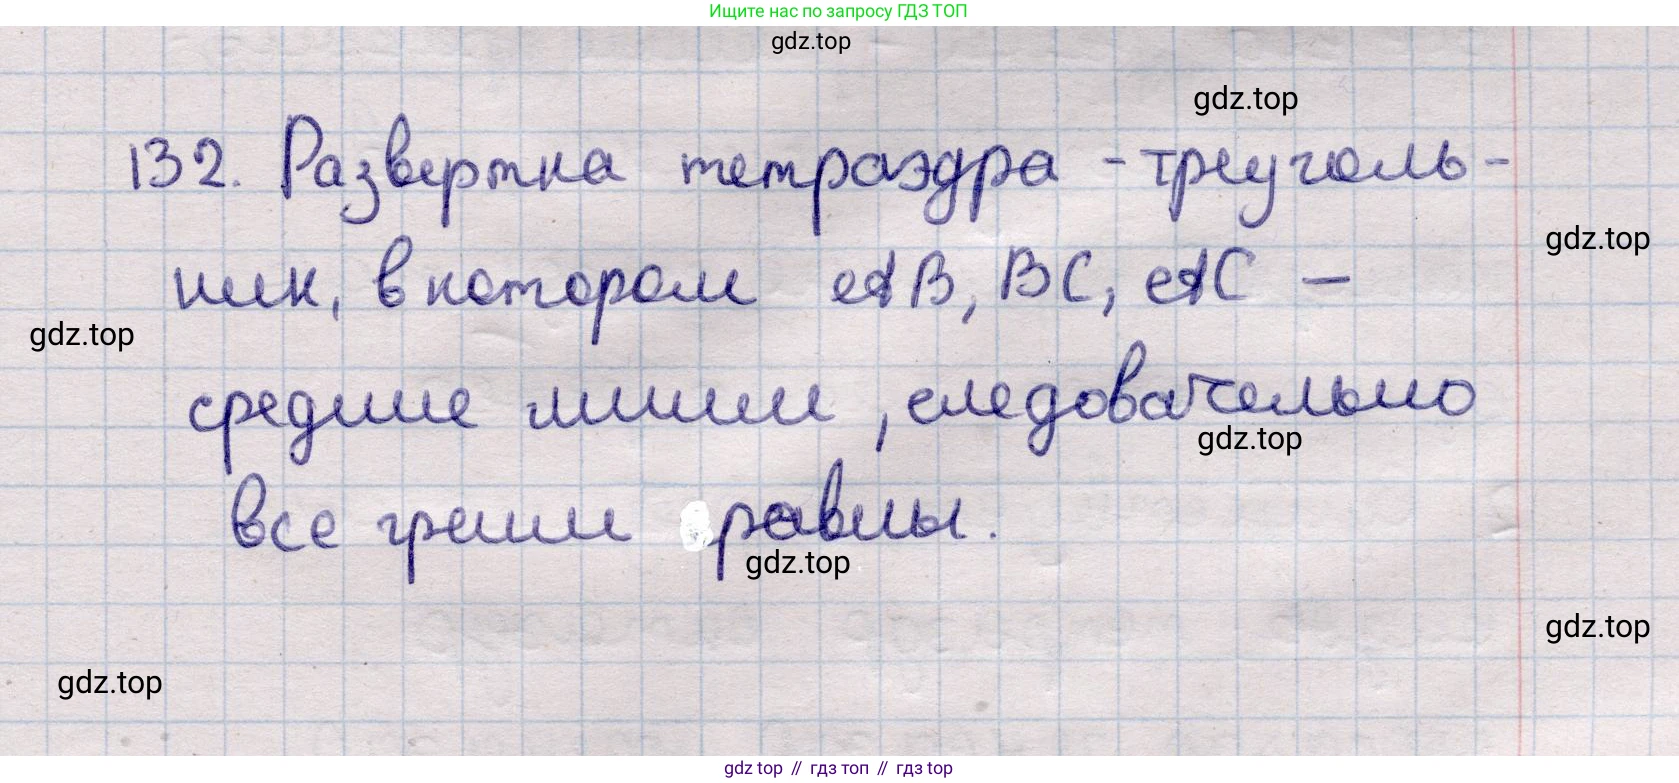 Ищите нас по запросу ГДЗ ТОП
gdz.top
gdz.top
132. Развертка тетраэдра - треуголь-
gdz.top
ник, в котором AB, BC, AC –
gdz.top
средние линии, следовательно
gdz.top
все грани равны.
gdz.top
gdz.top
gdz.top
gdz top // гдз топ // гдз top